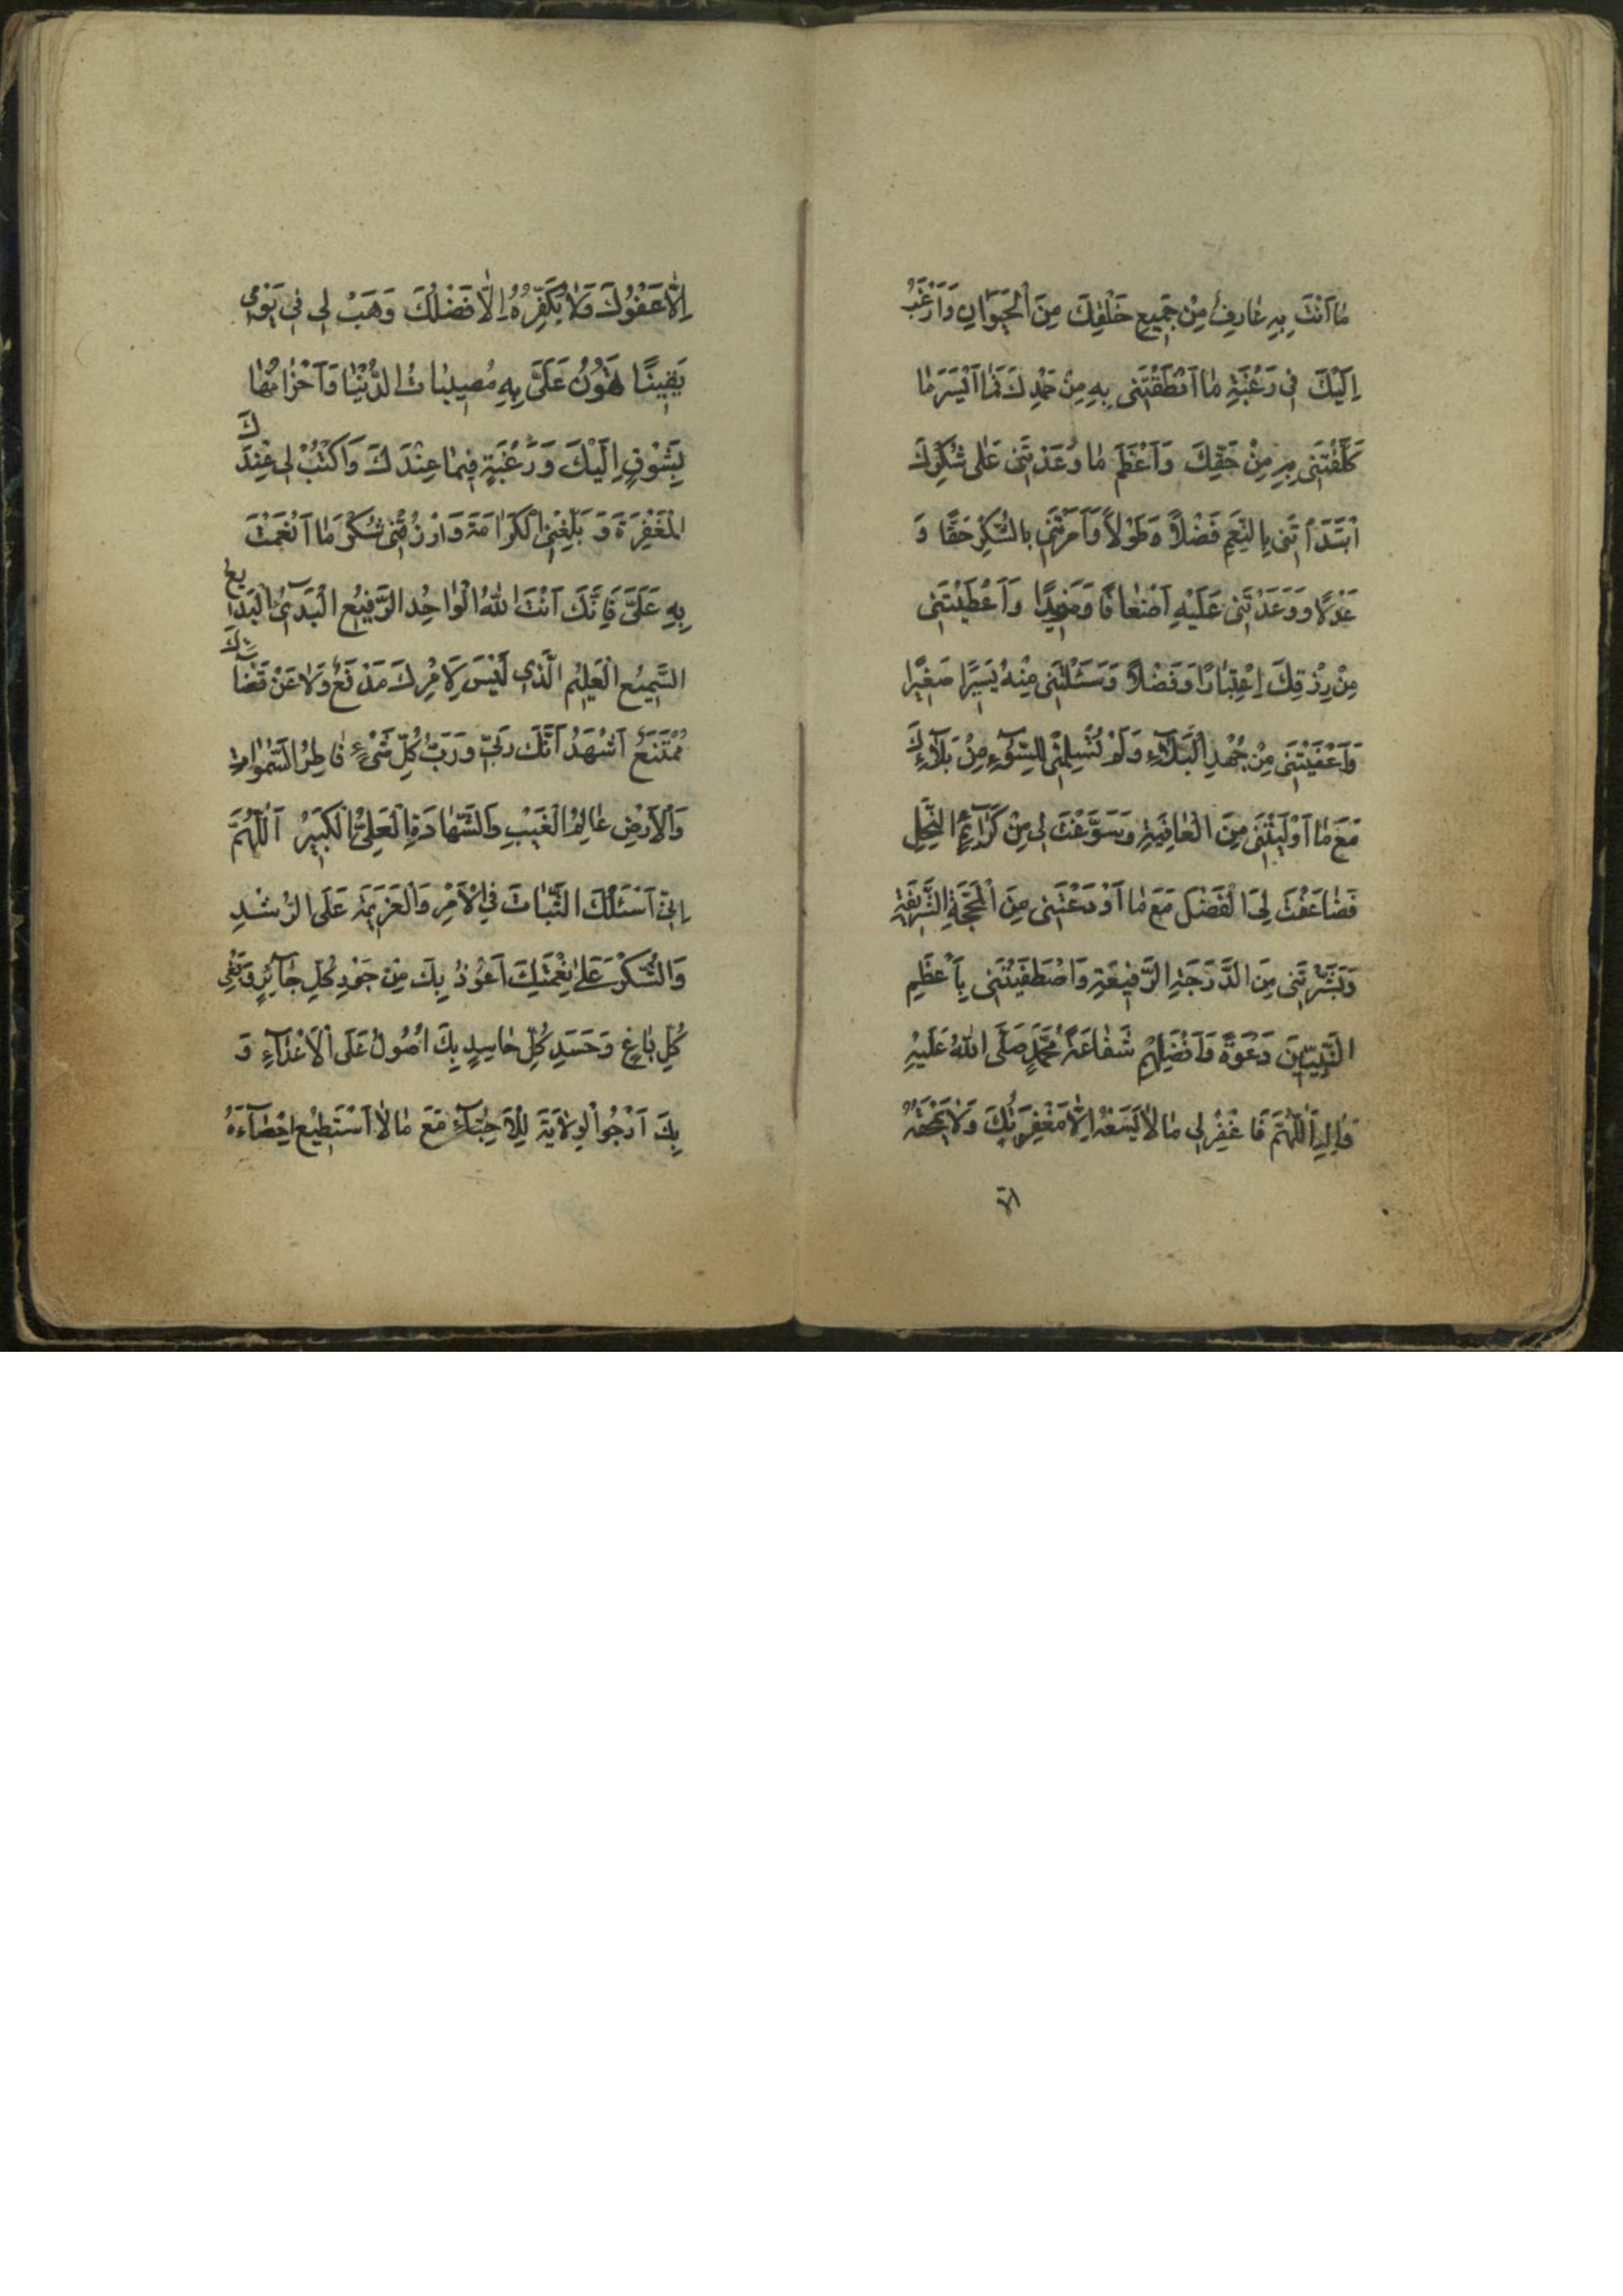 مٰا اَنْتَ بِهِ عٰارِفٌ مِنْ جَمِيعِ خَلْقِكَ مِنَ الْحَيَوٰانِ وَاَرْغَبُ
اِلَيْكَ فِي رَغْبَةِ مٰا اَنْطَقْتَنِي بِهِ مِنْ حَمْدِكَ فَمٰا اَيْسَرَ مٰا
كَلَّفْتَنِي بِهِ مِنْ حَقِّكَ وَاَعْظَمَ مٰا وَعَدْتَنِي عَلٰى شُكْرِكَ
اَبْتَدَأْتَنِي بِالنِّعَمِ فَضْلاً وَطَوْلاً وَاَمَرْتَنِي بِالشُّكْرِ حَقًّا وَ
عَدْلاً وَوَعَدْتَنِي عَلَيْهِ اَضْعٰافًا وَمَزِيدًا وَاَعْطَيْتَنِي
مِنْ رِزْقِكَ اِعْتِبٰارًا وَفَضْلاً وَسَئَلْتَنِي مِنْهُ يَسِيرًا صَغِيرًا
وَاَعْفَيْتَنِي مِنْ جُهْدِ الْبَلآءِ وَلَمْ تُسْلِمْنِي لِلسُّوۤءِ مِنْ بَلآءِكَ
مَعَ مٰا اَوْلَيْتَنِي مِنَ الْعٰافِيَةِ وَسَوَّغْتَ لِي مِنْ كَرٰآئِمِ النِّحَلِ
فَضٰاعَفْتَ لِيَ الْفَضْلَ مَعَ مٰا اَوْدَعْتَنِي مِنَ الْمَحَجَّةِ الشَّرِيفَةِ
وَبَشَّرْتَنِي مِنَ الدَّرَجَةِ الرَّفِيعَةِ وَاصْطَفَيْتَنِي بِاَعْظَمِ
النَّبِيِّينَ دَعْوَةً وَاَفْضَلِهِمْ شَفٰاعَةً مُحَمَّدٍ صَلَّى اللهُ عَلَيْهِ
وَاٰلِهِ اَللّٰهُمَّ فَاغْفِرْ لِي مٰا لاٰ يَسَعُهُ اِلاّٰ مَغْفِرَتُكَ وَلاٰ يَمْحَقُهُ
الاّ
اِلاّٰ عَفْوُكَ وَلاٰ يُكَفِّرُهُ اِلاّٰ فَضْلُكَ وَهَبْ لِي فِي يَوْمِي
يَقِينًا تُهَوِّنُ عَلَيَّ بِهِ مُصِيبٰاتُ الدُّنْيٰا وَاَحْزٰانُهٰا
بِشَوْقٍ اِلَيْكَ وَرَغْبَةٍ فِيمٰا عِنْدَكَ وَاَكْتُبْ لِي عِنْدَكَ
الْمَغْفِرَةَ وَبَلِّغْنِي الْكَرٰامَةَ وَارْزُقْنِي شُكْرَ مٰا اَنْعَمْتَ
بِهِ عَلَيَّ فَاِنَّكَ اَنْتَ اللهُ الْوٰاحِدُ الرَّفِيعُ الْبَدِيۤءُ الْبَدِيعُ
السَّمِيعُ الْعَلِيمُ الَّذِي لَيْسَ لِاَمْرِكَ مَدْفَعٌ وَلاٰ عَنْ قَضٰائِكَ
مُمْتَنَعٌ اَشْهَدُ اَنَّكَ رَبِّي وَرَبُّ كُلِّ شَيْءٍ فٰاطِرُ السَّمٰوٰاتِ
وَالْاَرْضِ عٰالِمُ الْغَيْبِ وَالشَّهٰادَةِ الْعَلِيُّ الْكَبِيرُ اَللّٰهُمَّ
اِنِّي اَسْئَلُكَ الثَّبٰاتَ فِي الْاَمْرِ وَالْعَزِيمَةَ عَلَى الرُّشْدِ
وَالشُّكْرَ عَلٰى نِعْمَتِكَ اَعُوذُ بِكَ مِنْ جَوْرِ كُلِّ جٰآئِرٍ وَبَغْيِ
كُلِّ بٰاغٍ وَحَسَدِ كُلِّ حٰاسِدٍ بِكَ اَصُولُ عَلَى الْاَعْدٰآءِ وَ
بِكَ اَرْجُوا لْوِلاٰيَةَ لِلْاَحِبّٰآءِ مَعَ مٰا لاٰ اَسْتَطِيعُ اِحْصٰآءَهُ